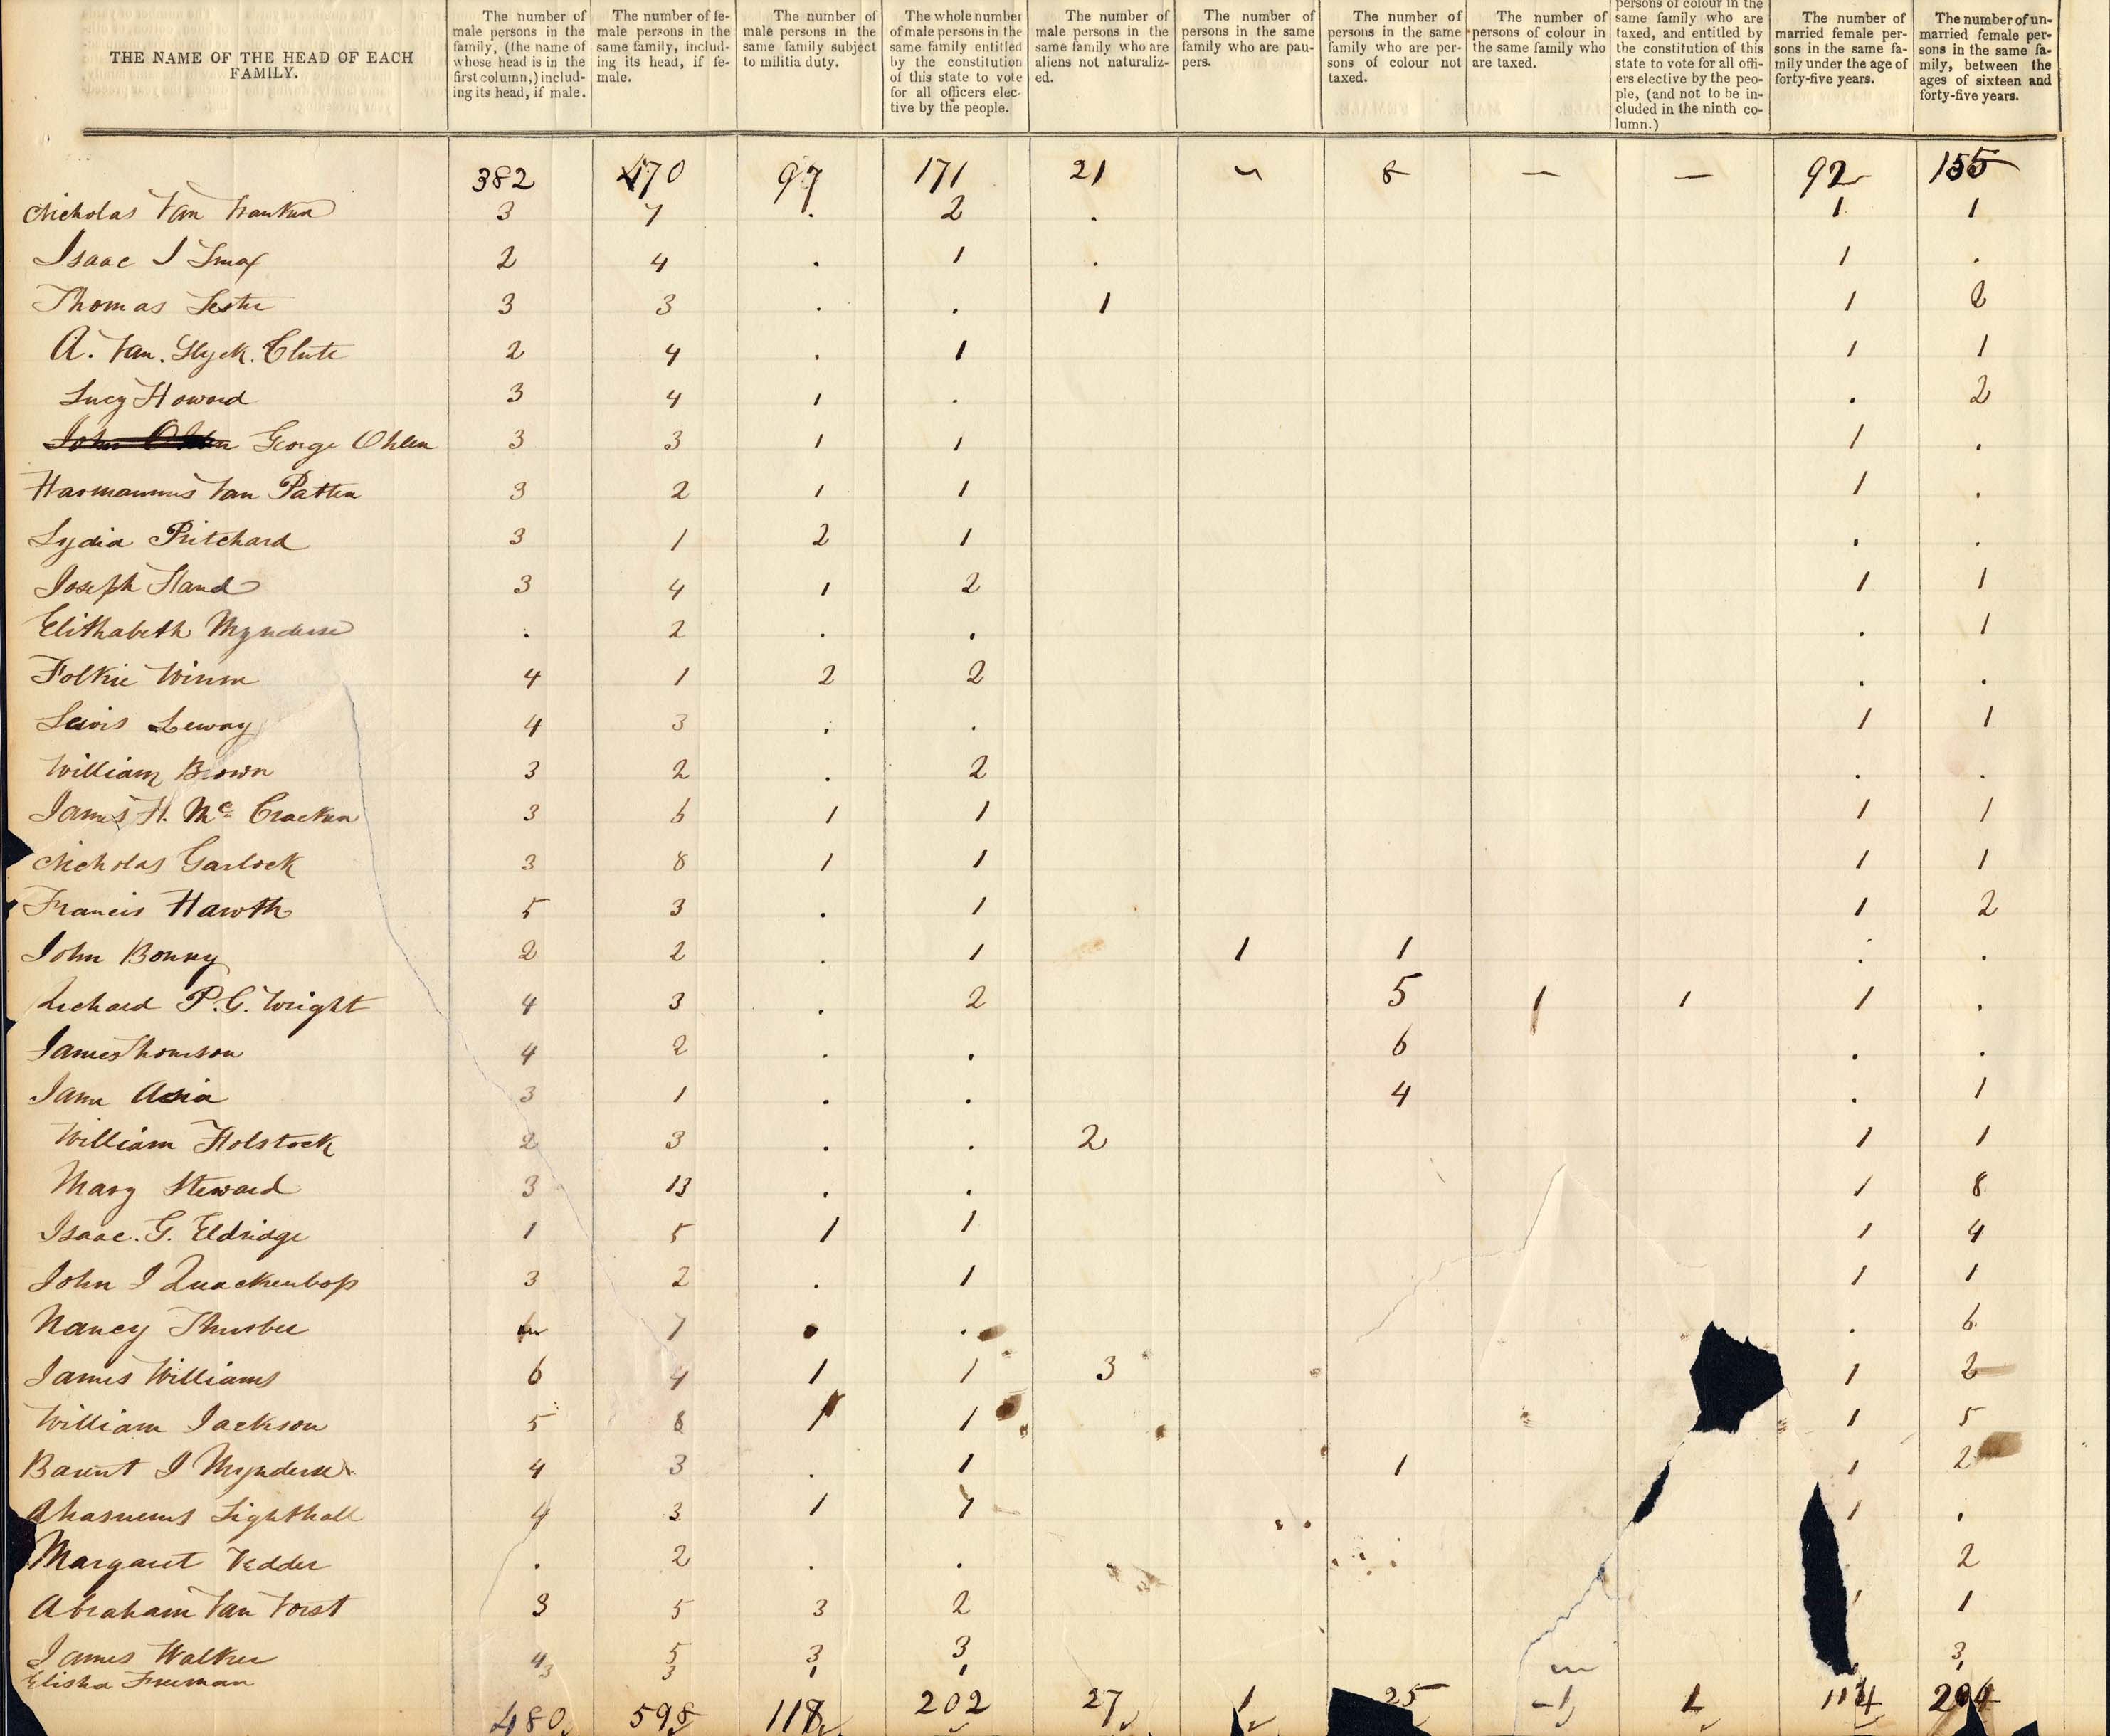 THE NAME OF THE HEAD OF EACH FAMILY.
The number of male persons in the family, (the name of whose head is in the first column,) including its head, if male.
The number of female persons in the same family, including its head, if female.
The number of male persons in the same family subject to militia duty.
The whole number of male persons in the same family entitled by the constitution of this state to vote for all officers elective by the people.
The number of male persons in the same family who are aliens not naturalized.
The number of persons in the same family who are paupers.
The number of persons in the same family who are persons of colour not taxed.
The number of persons of colour in the same family who are taxed.
persons of colour in the same family who are taxed, and entitled by the constitution of this state to vote for all officers elective by the people, (and not to be included in the ninth column.)
The number of married female persons in the same family under the age of forty-five years.
The number of unmarried female persons in the same family, between the ages of sixteen and forty-five years.
382 470 97 171 21 ~ 8 — — 92 155
Nicholas Van Franken 3 7 . 2 . 1 1
Isaac J 2 4 . 1 . 1 .
Thomas Lester 3 3 . . 1 1 2
A. Van. Slyck. Clute 2 4 . 1 1 1
Lucy Howard 3 4 1 . . 2
John Ohlen George Ohlen 3 3 1 1 1 .
Harmannus Van Patten 3 2 1 1 1 .
Lydia Pritchard 3 1 2 1 . .
Joseph Hand 3 4 1 2 1 1
Elithabeth Mynderse . 2 . . . 1
Folkie Winne 4 1 2 2 . .
Lewis Leway 4 3 . . 1 1
William Brown 3 2 . 2 . .
James H. Mc Cracken 3 6 1 1 1 1
Nicholas Garlock 3 8 1 1 1 1
Francis Hawth 5 3 . 1 1 2
John Bonny 2 2 . 1 1 1 . .
Richard P. G. Wright 4 3 . 2 5 1 1 1 .
James Thomson 4 2 . . 6 . .
Jane 3 1 . . 4 . 1
William Holstock 2 3 . . 2 1 1
Mary Steward 3 13 . . 1 8
Isaac. G. Eldridge 1 5 1 1 1 4
John I Quackenboss 3 2 . 1 1 1
Nancy Thurber 7 . . . 6
James Williams 6 4 1 1 3 1 2
William Jackson 5 8 1 1 1 5
Barent I Mynderse 4 3 . 1 1 1 2
Ahasuerus Lighthall 4 3 1 1 .
Margaret Vedder . 2 . . . 2
Abraham Van Vorst 3 5 3 2 1 1
James Walker 4 5 3 3 3
Elisha Freeman 3 3 1 1 1
480 598 118 202 27 1 25 1 1 114 204